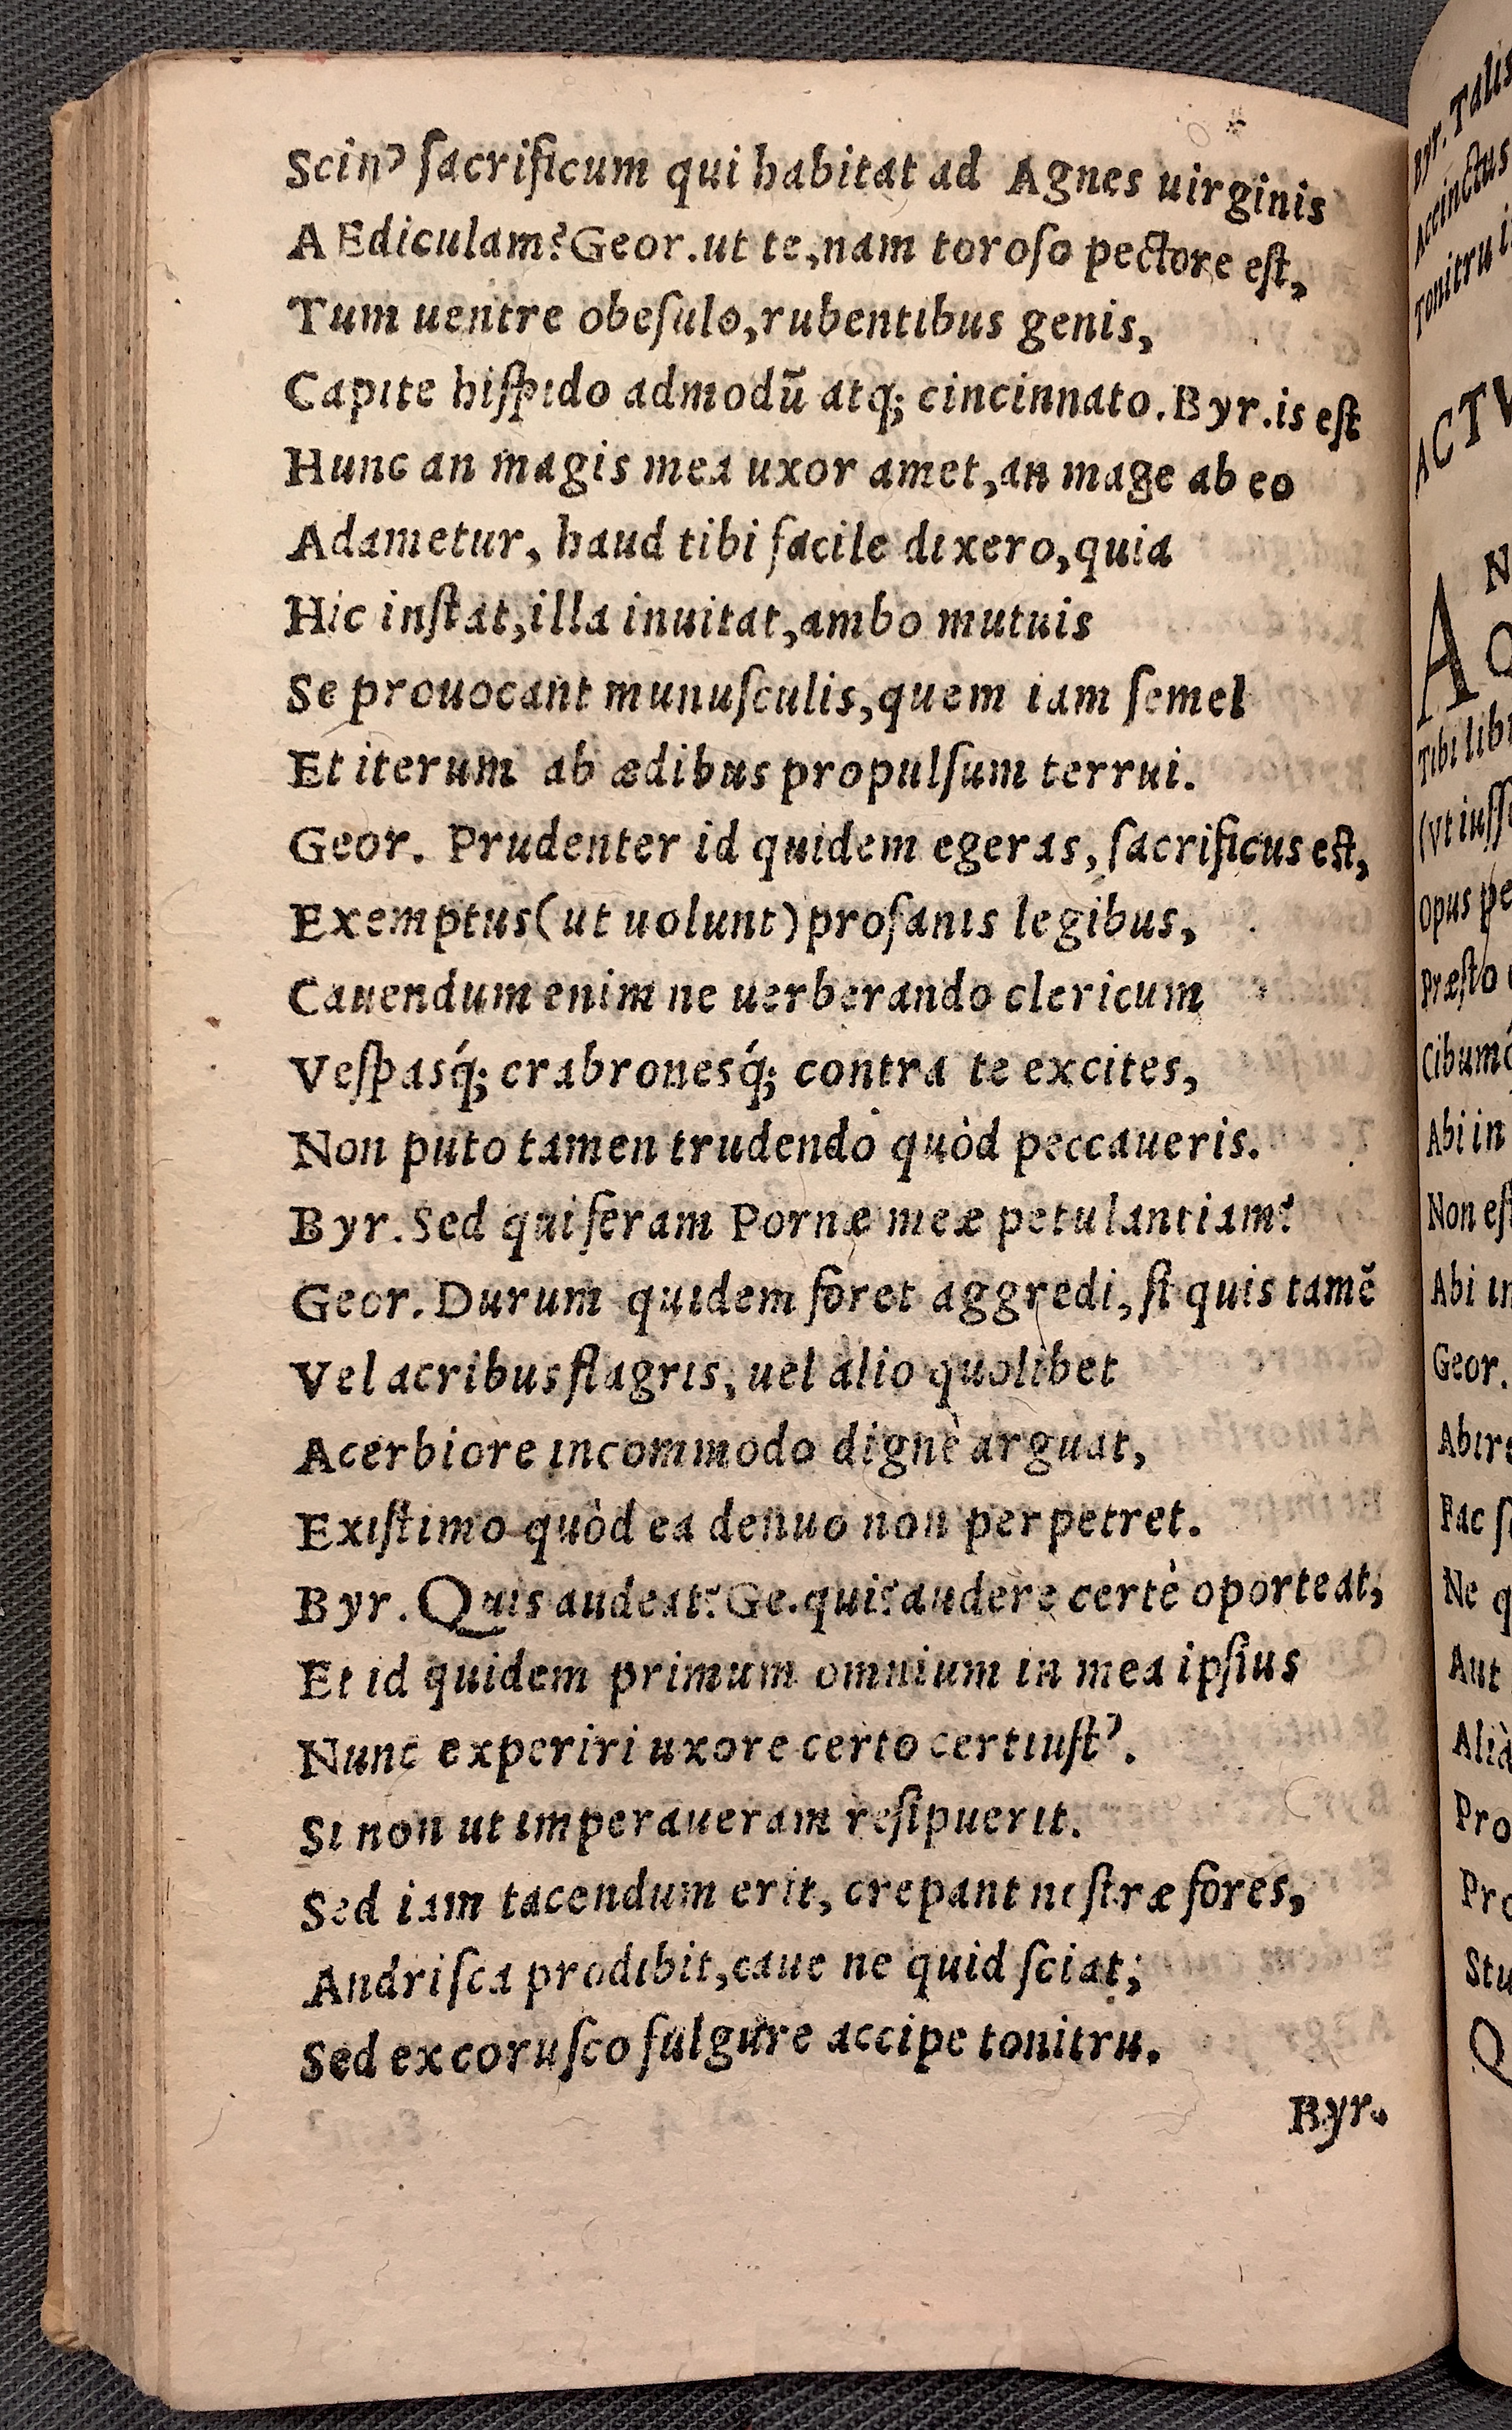 Scin' ſacrificum qui habitat ad Agnes uirginis
AEdiculam? Geor. ut te, nam toroſo pectore eſt,
Tum uentre obeſulo, rubentibus genis,
Capite hiſpido admodū atq; cincinnato. Byr. is eſt
Hunc an magis mea uxor amet, an mage ab eo
Adametur, haud tibi facile dixero, quia
Hic inſtat, illa inuitat, ambo mutuis
Se prouocant munuſculis, quem iam ſemel
Et iterum ab ædibus propulſum terrui.
Geor. Prudenter id quidem egeras, ſacrificus eſt,
Exemptus (ut uolunt) profanis legibus,
Cauendum enim ne uerberando clericum
Veſpasq́; crabronesq́; contra te excites,
Non puto tamen trudendo quòd peccaueris.
Byr. Sed qui feram Pornæ meæ petulantiam?
Geor. Durum quidem foret aggredi, ſi quis tamẽ
Vel acribus flagris, uel alio quolibet
Acerbiore incommodo dignè arguat,
Exiſtimo quòd ea denuo non perpetret.
Byr. Quis audeat? Ge. quis? audere certè oporteat,
Et id quidem primum omnium in mea ipſius
Nunc experiri uxore certo certiuſt'.
Si non ut imperaueram reſipuerit.
Sed iam tacendum erit, crepant noſtræ fores,
Andriſca prodibit, caue ne quid ſciat;
Sed ex coruſco fulgure accipe tonitru.
Byr.
Byr. Talis
Accinctus
Tonitru
Tibi
Opus
Præſto
Abi in
Non
Abi
Geor.
Fac
Ne
Aut